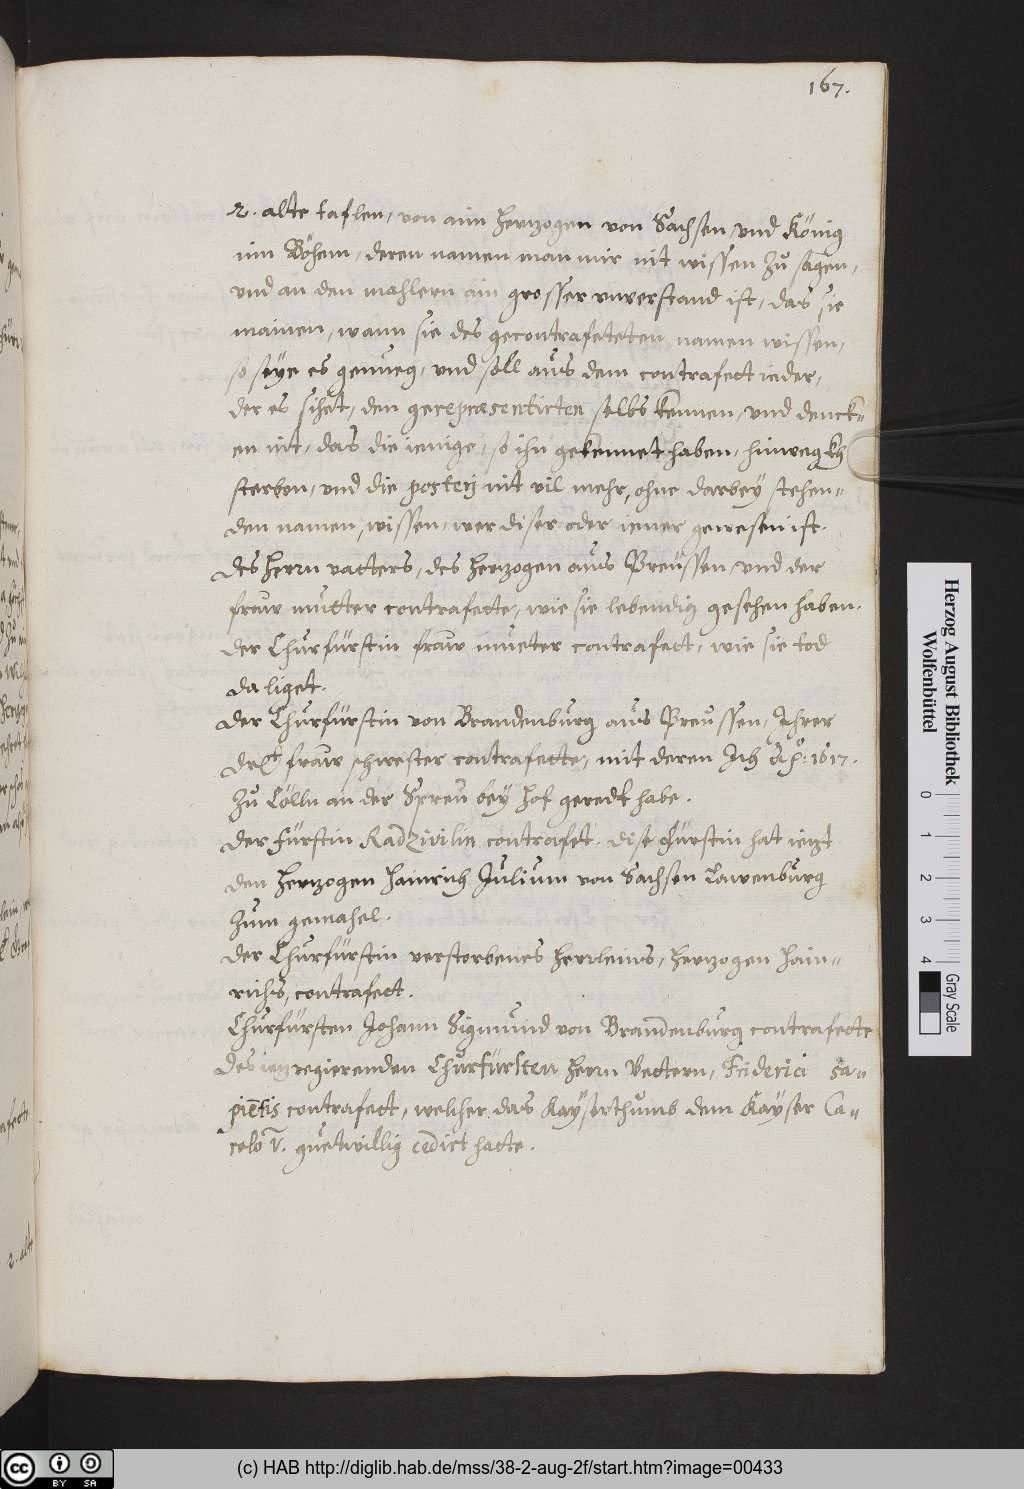 167.
2. alte taflen, von ainn Herzogen von Sachsen, und König
inn Böhem, deren namen man mir nit wissen zů sagen,
und an den mahlern ain grosser unverstand ist, das sie
mainen, wann sie des gecontrafeteten namen wissen,
so seÿe es genueg, und soll aus dem contrafett ieder,
der es sihet, den gerepræsentirten selbs kennen, und denck=
en nit, das die ienige, so ihn gekennet haben, hinweg
sterben, und die posterj nit vil mehr, ohne darbeÿ stehen=
den namen, wissen, wer diser oder iener gewesen ist.
des Herrn vatters, des Herzogen aus Preüssen, und der
fraw mutter contrafette, wie sie lebendig gesehen haben.
der Churfürstin fraw mueter contrafett, wie sie tod
da liget.
der Churfürstin von Brandenburg aus Preussen, Ihrer
fraw schwester contrafette, mit deren Ich Aº: 1617.
zů Cölln an der Spreu beÿ hof geredt habe.
der fürstin Radzivilin contrafet. dise fürstin hat ietzt
den Herzogen Hainrich Julium von Sachsen Lawenburg
zum gemahel.
der Churfürstin verstorbenes Herrleins, Herzogen Hain=
richs, contrafett.
Churfürsten Johann Sigmund von Brandenburg contrafette
des ietz regierenden Churfürsten Herrn Vettern, Friderici Sa=
piētis contrafett, welcher das Kaÿserthumb dem Kaÿser Ca=
rolo V. guetwillig cedirt hatte.
2. alte
Herzog August Bibliothek
Wolfenbüttel
0 1 2 3 4
Gray Scale
cc BY SA
(c) HAB http://diglib.hab.de/mss/38-2-aug-2f/start.htm?image=00433